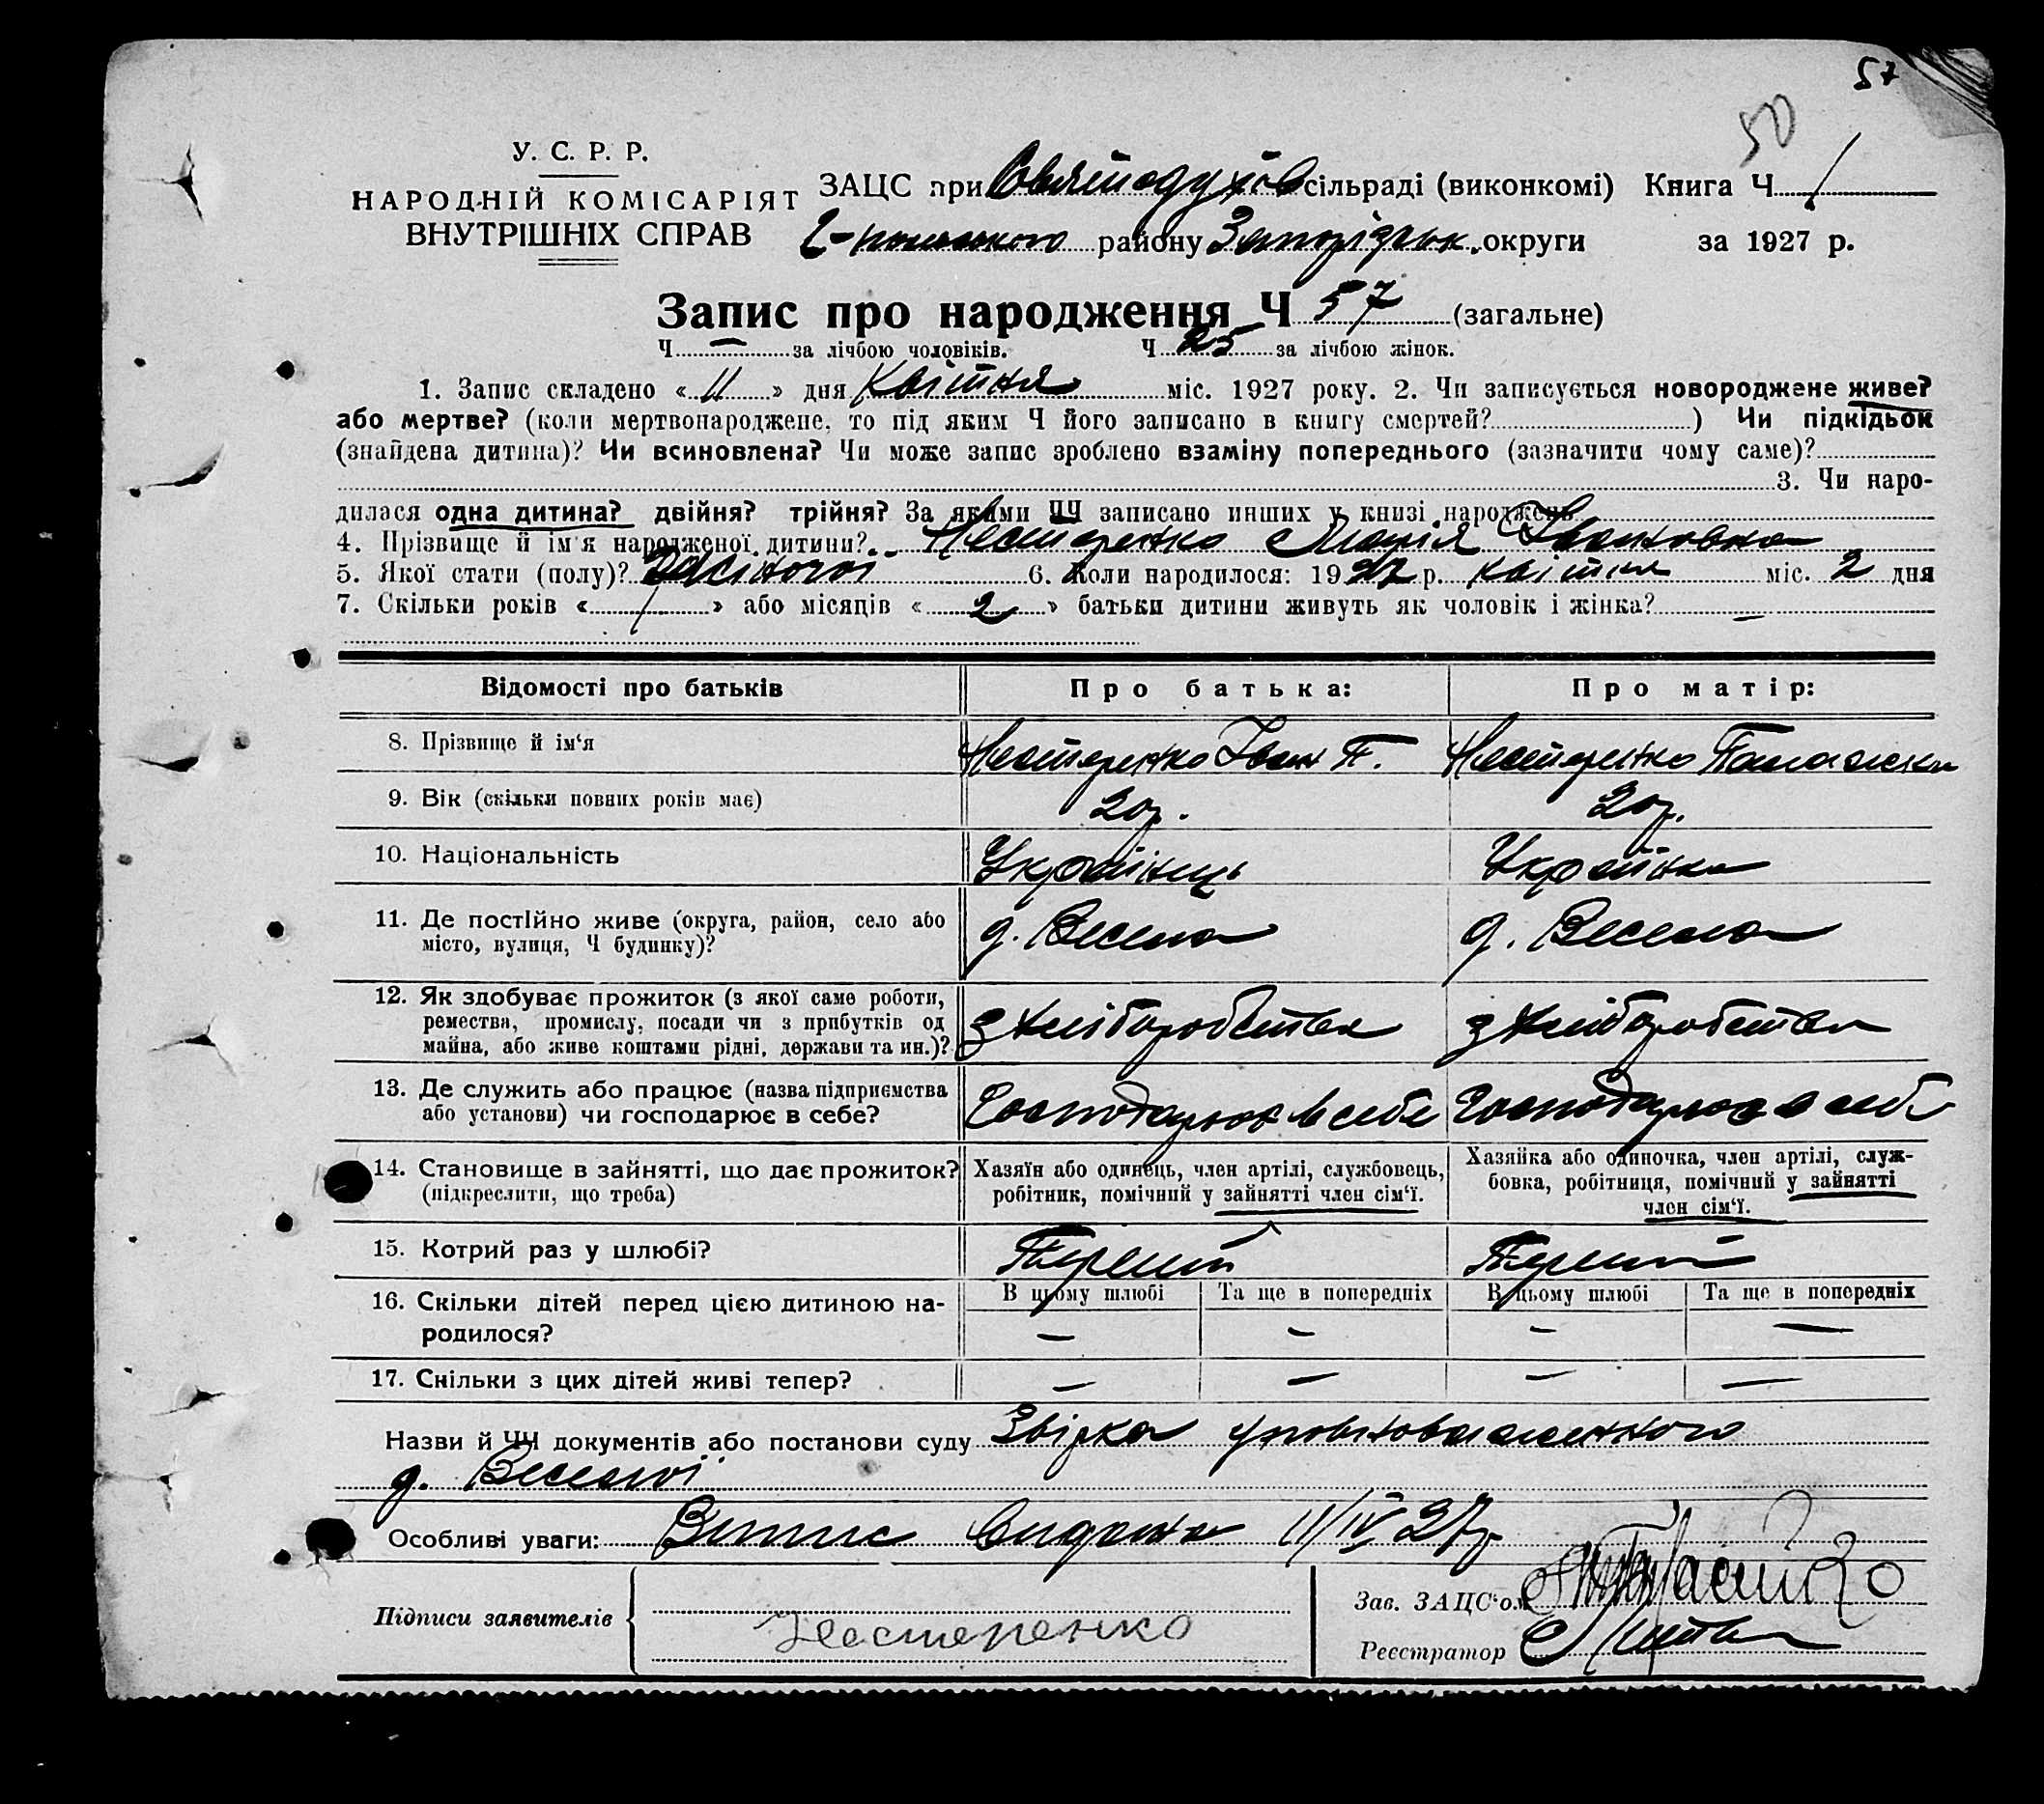 57
50
У. С. Р. Р.
НАРОДНІЙ КОМІСАРІЯТ
ВНУТРІШНІХ СПРАВ
ЗАЦС при Святодухів сільраді (виконкомі) Книга Ч. 1
району Запорізьк. округи за 1927 р.
Запис про народження Ч 57 (загальне)
Ч. — за лічбою чоловіків. Ч 25 за лічбою жінок.
1. Запис складено « 11 » дня Квітня міс. 1927 року. 2. Чи записується новороджене живе?
або мертве? (коли мертвонароджене, то під яким Ч його записано в книгу смертей? ) Чи підкідьок
(знайдена дитина)? Чи всиновлена? Чи може запис зроблено взаміну попереднього (зазначити чому саме)?
3. Чи наро-
дилася одна дитина? двійня? трійня? За якими ЧЧ записано инших у книзі народжень
4. Прізвище й ім'я народженої дитини? Нестеренко Марія Івановна
5. Якої стати (полу)? Жіночої 6. Коли народилося: 1927 р. квітня міс. 2 дня
7. Скільки років « / » або місяців « 2 » батьки дитини живуть як чоловік і жінка? —
Відомості про батьків Про батька: Про матір:
8. Прізвище й ім'я Нестеренко Іван П. Нестеренко
9. Вік (скільки повних років має) 20р. 20р.
10. Національність Українець Українка
11. Де постійно живе (округа, район, село або
місто, вулиця, Ч будинку)? д. Весела д. Весела
12. Як здобуває прожиток (з якої саме роботи,
ремества, промислу, посади чи з прибутків од
майна, або живе коштами рідні, держави та ин.)? з хліборобства з хліборобства
13. Де служить або працює (назва підприємства
або установи) чи господарює в себе? Господарює в себе Господарює в себе
14. Становище в зайнятті, що дає прожиток?
(підкреслити, що треба)
Хазяїн або одинець, член артілі, службовець,
робітник, помічний у зайнятті член сім'ї.
Хазяйка або одиночка, член артілі, служ-
бовка, робітниця, помічний у зайнятті
член сім'ї.
15. Котрий раз у шлюбі? Перший Перший
16. Скільки дітей перед цією дитиною на-
родилося?
В цьому шлюбі Та ще в попередніх В цьому шлюбі Та ще в попередніх
— — — —
17. Скільки з цих дітей живі тепер? — — — —
Назви й ЧЧ документів або постанови суду Звірка уповноваженного
д. Веселої
Особливі уваги: Випис видана 11/IV 27р
Підписи заявителів Нестеренко
Зав. ЗАЦС'ом
Реєстратор